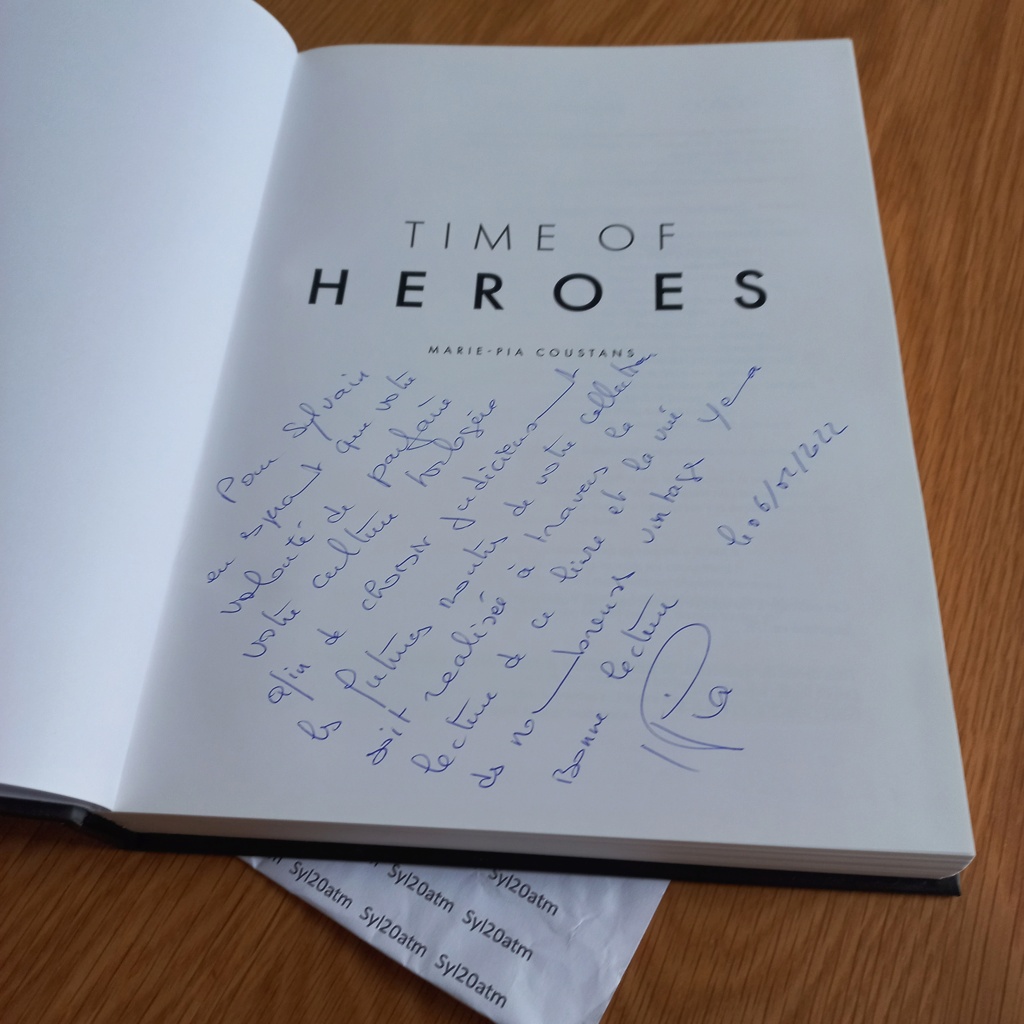 TIME OF
HEROES
MARIE-PIA COUSTANS
Pour Sylvain
en espérant que votre
volonté de parfaire
votre culture horlogère
afin de choisir judicieusement
les futures montres de votre collection
soit realisée à travers la
lecture de ce livre et la vie
de nombreuses vintage
Bonne lecture
le 06/02/2022
Pia
Syl20atm Syl20atm
Syl20atm Syl20atm
Syl20atm Syl20atm